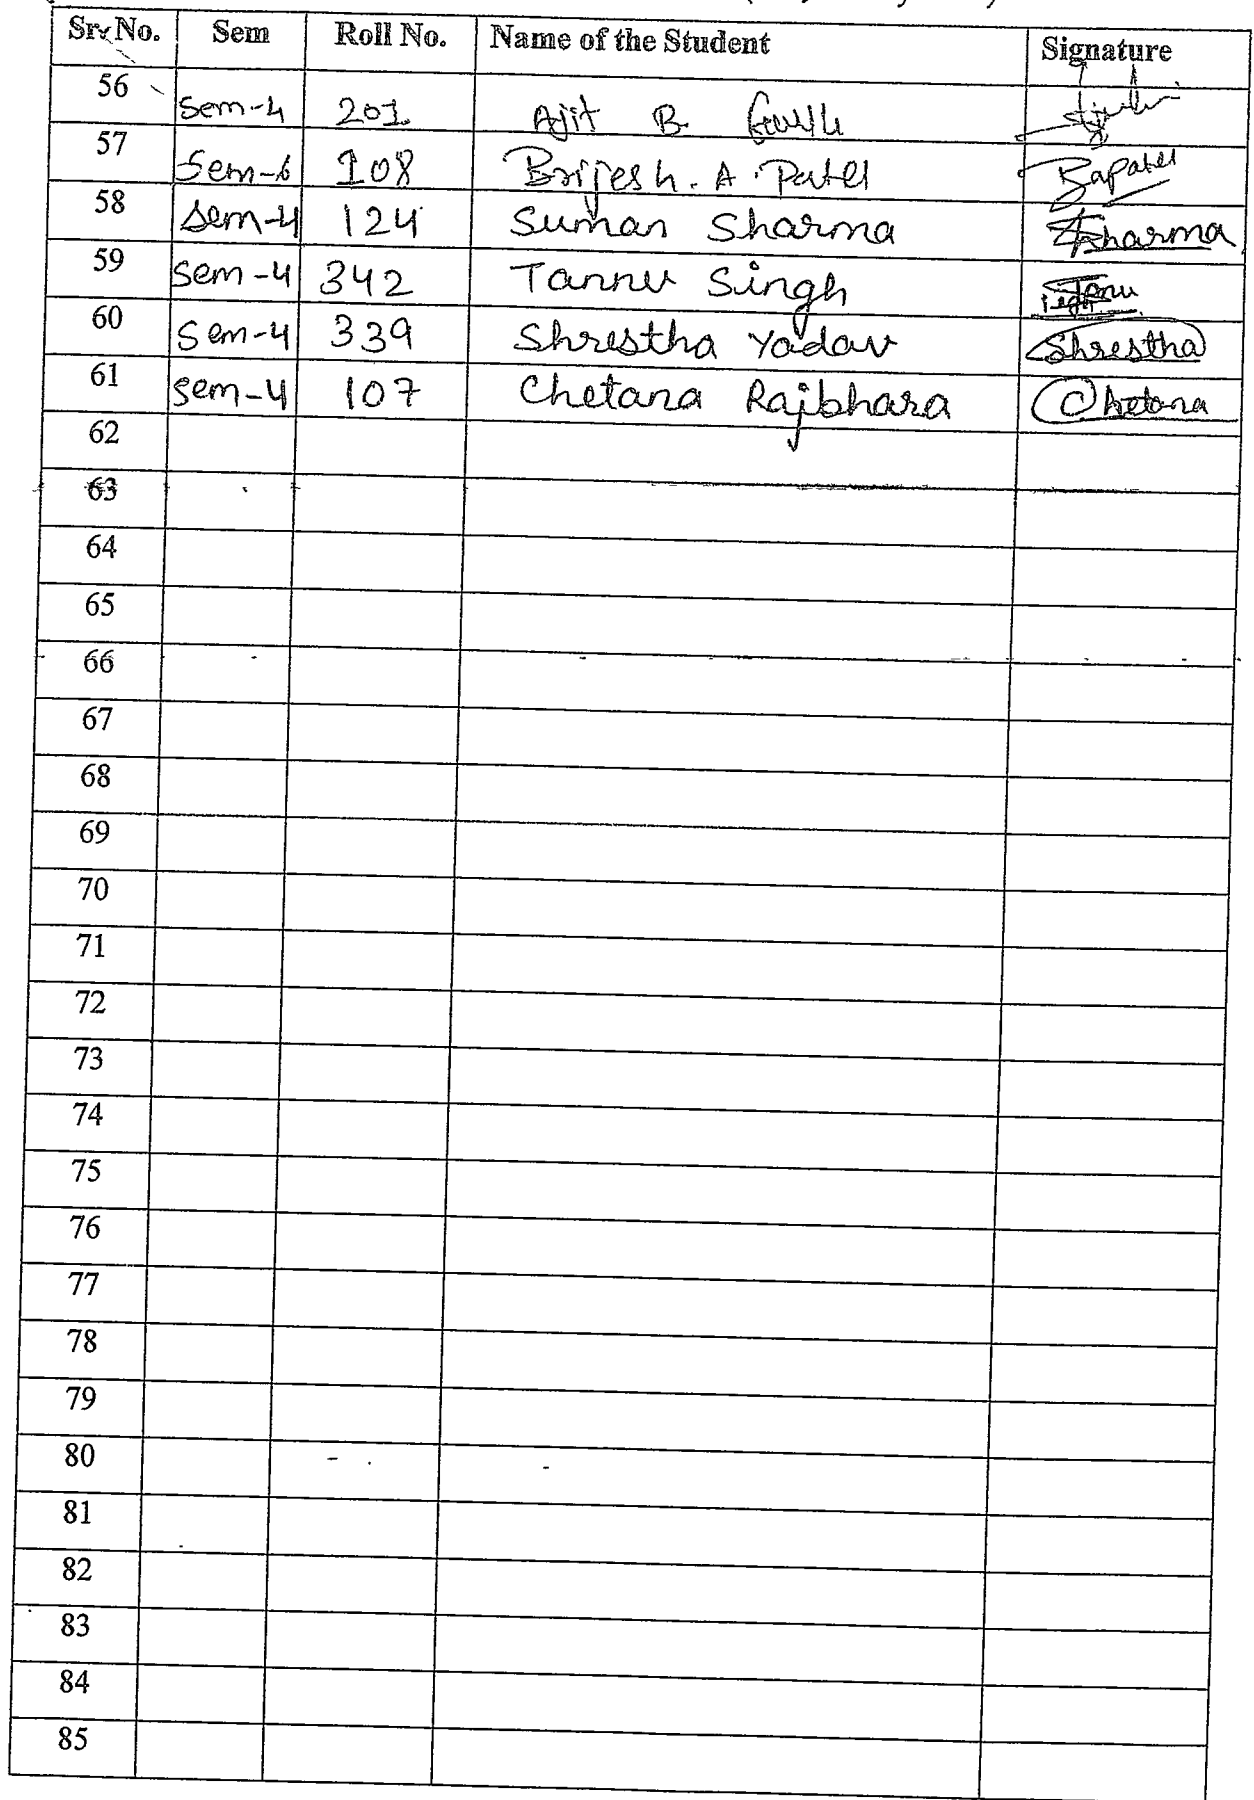 Sr. No. Sem Roll No. Name of the Student Signature
56 Sem-4 201 Ajit B.
57 Sem-6 108 Brijesh. A. Patel Bapatel
58 Sem-4 124 Suman Sharma Sharma
59 Sem-4 342 Tannu Singh
60 Sem-4 339 Shrestha Yadav Shrestha
61 Sem-4 107 Chetana Rajbhara Chetana
62
63
64
65
66
67
68
69
70
71
72
73
74
75
76
77
78
79
80
81
82
83
84
85